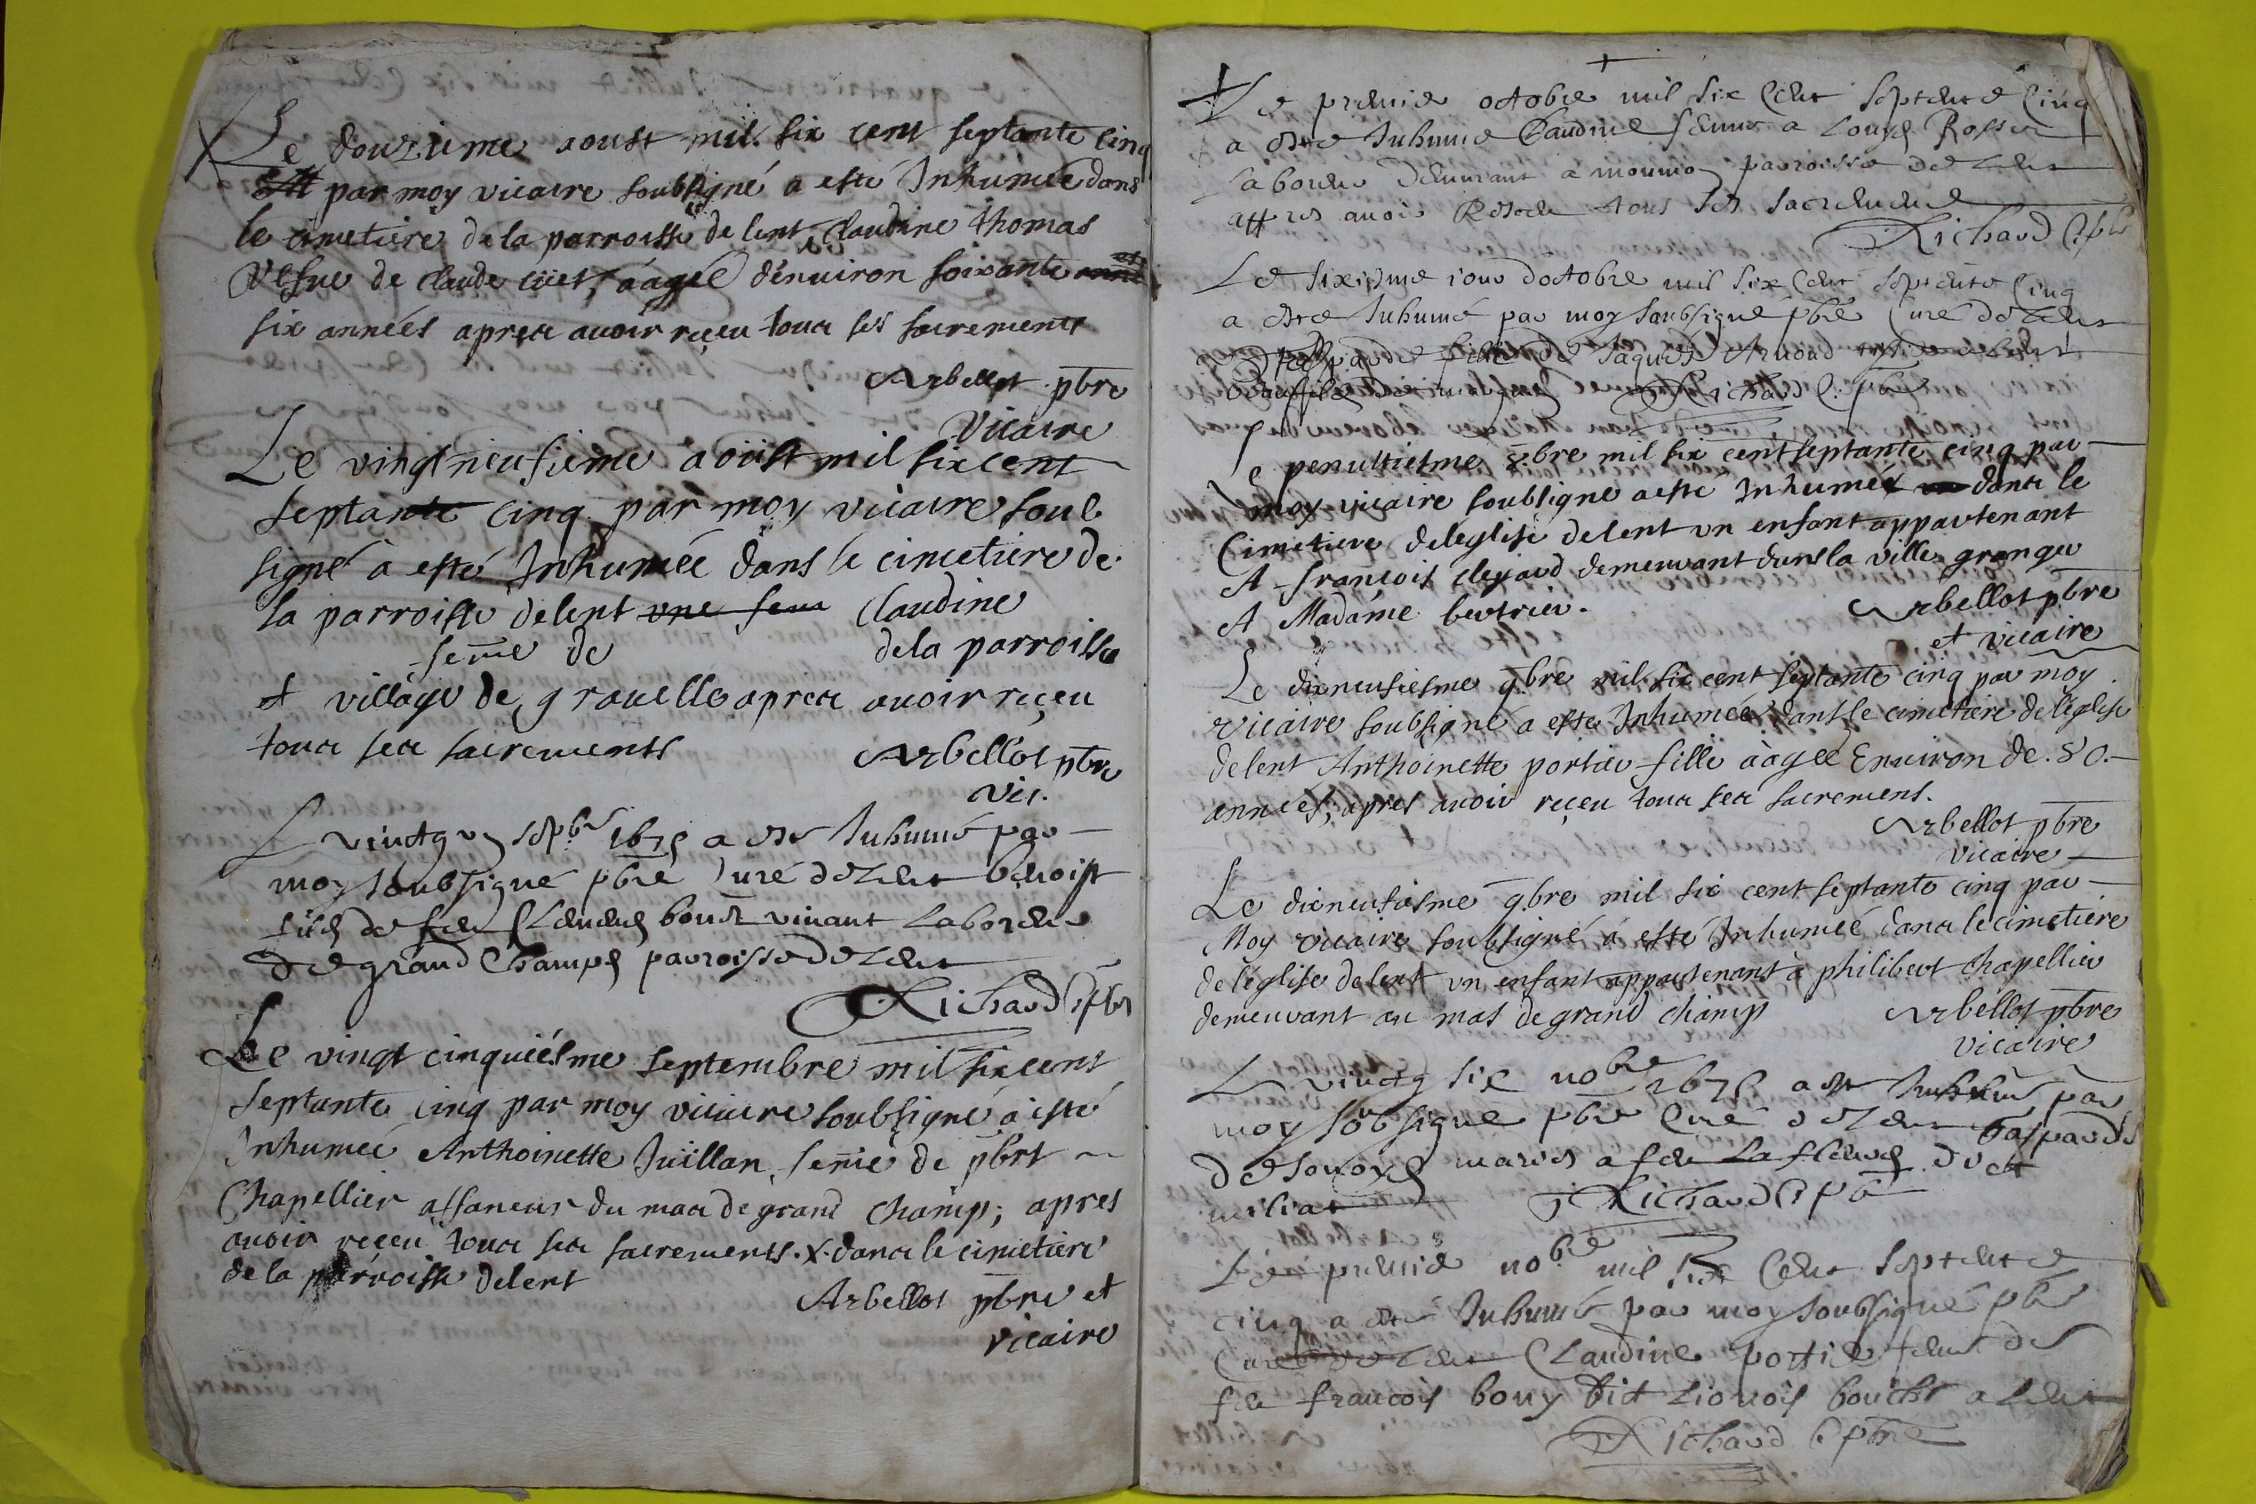 Le douzième aoust mil six cent septante cinq
par moy vicaire soubsigné a esté Inhumée dans
le cimetière de la parroisse de lent Claudine thomas
Vefue de Claude âagée d'enuiron soixante et
six années aprea auoir reçeu toua ses sacrements
Arbellot pbre
Vicaire
Le vingt neufieme aoust mil six cent
septante cinq par moy vicaire soub
signé a esté Inhumée dans le cimetiere de
la parroisse de lent une fem Claudine
feme de de la parroisse
et village de grauelle aprea auoir reçeu
toua sea sacrements
Arbellot pbre
vic.
Le vintg un sepbr 1675 a este Inhumé par
moy soubsigné pbre curé de Lent benoist
filz de feu bouet viuant Laboreur
de grand Champz parroisse de Lent
Richard C. pbr
Le vingt cinquiésme septembre mil six cent
septante cinq par moy vicaire soubsigné a esté
Inhumée Anthoinette Juillan feme de pbrt
Chapellier affaneur du maa de grand champ; apres
auoir reçeu toua sea sacrements. x. dana le cimetiere
de la parroisse de lent
Arbellot pbre et
vicaire
Le premier octobre mil six Cent septente Cinq
a este Inhumee Claudine feme a Louys Rosset
Laboreur demurant a parroisse de Lent
appres auoir Reseu tous ses sacrement
Richard C. pbr
Le sixisme iour d'octobre mil six Cent septente Cinq
a este Inhumé par moy soubsigné pbre Curé de Lent
fille de Jaques
Richard C. pbre
Le penultiesme 8.bre mil six cent septante cinq par
moy vicaire soubsigné a esté Inhumée dana le
Cimetiere de leglise de lent vn enfant appartenant
A francois clejard demeurant dans la ville granger
A Madame beutrier.
Arbellot pbre
et vicaire
Le dixneufiesme 9.bre mil six cent septante cinq par moy
vicaire soubsigné a esté Inhumée dans le cimetiere de l'eglise
de lent Anthoinette portier fille âagée Enuiron de .80.
années; apres auoir reçeu toua sea sacremens.
Arbellot pbre
vicaire
Le dixneufiesme 9.bre mil six cent septante cinq par
Moy vicaire soubsigné a esté Inhumée dana le cimetiere
de l'eglise de lent vn enfant appartenant à philibert chapellier
demeurant au mas de grand champ
Arbellot pbre
vicaire
Le vintg six nobre 1675 a este Inhumé par
moy sobsigné pbre Curé de Lent Gaspard
de
Richard C. pbr
Le premie nobre mil six Cent septente
cinq a este Inhumé par moy soubsigné pbr
Curé de Lent Claudine portie feme de
feu francois bouy dit Lionois bouché a Lent
Richard C. pbre